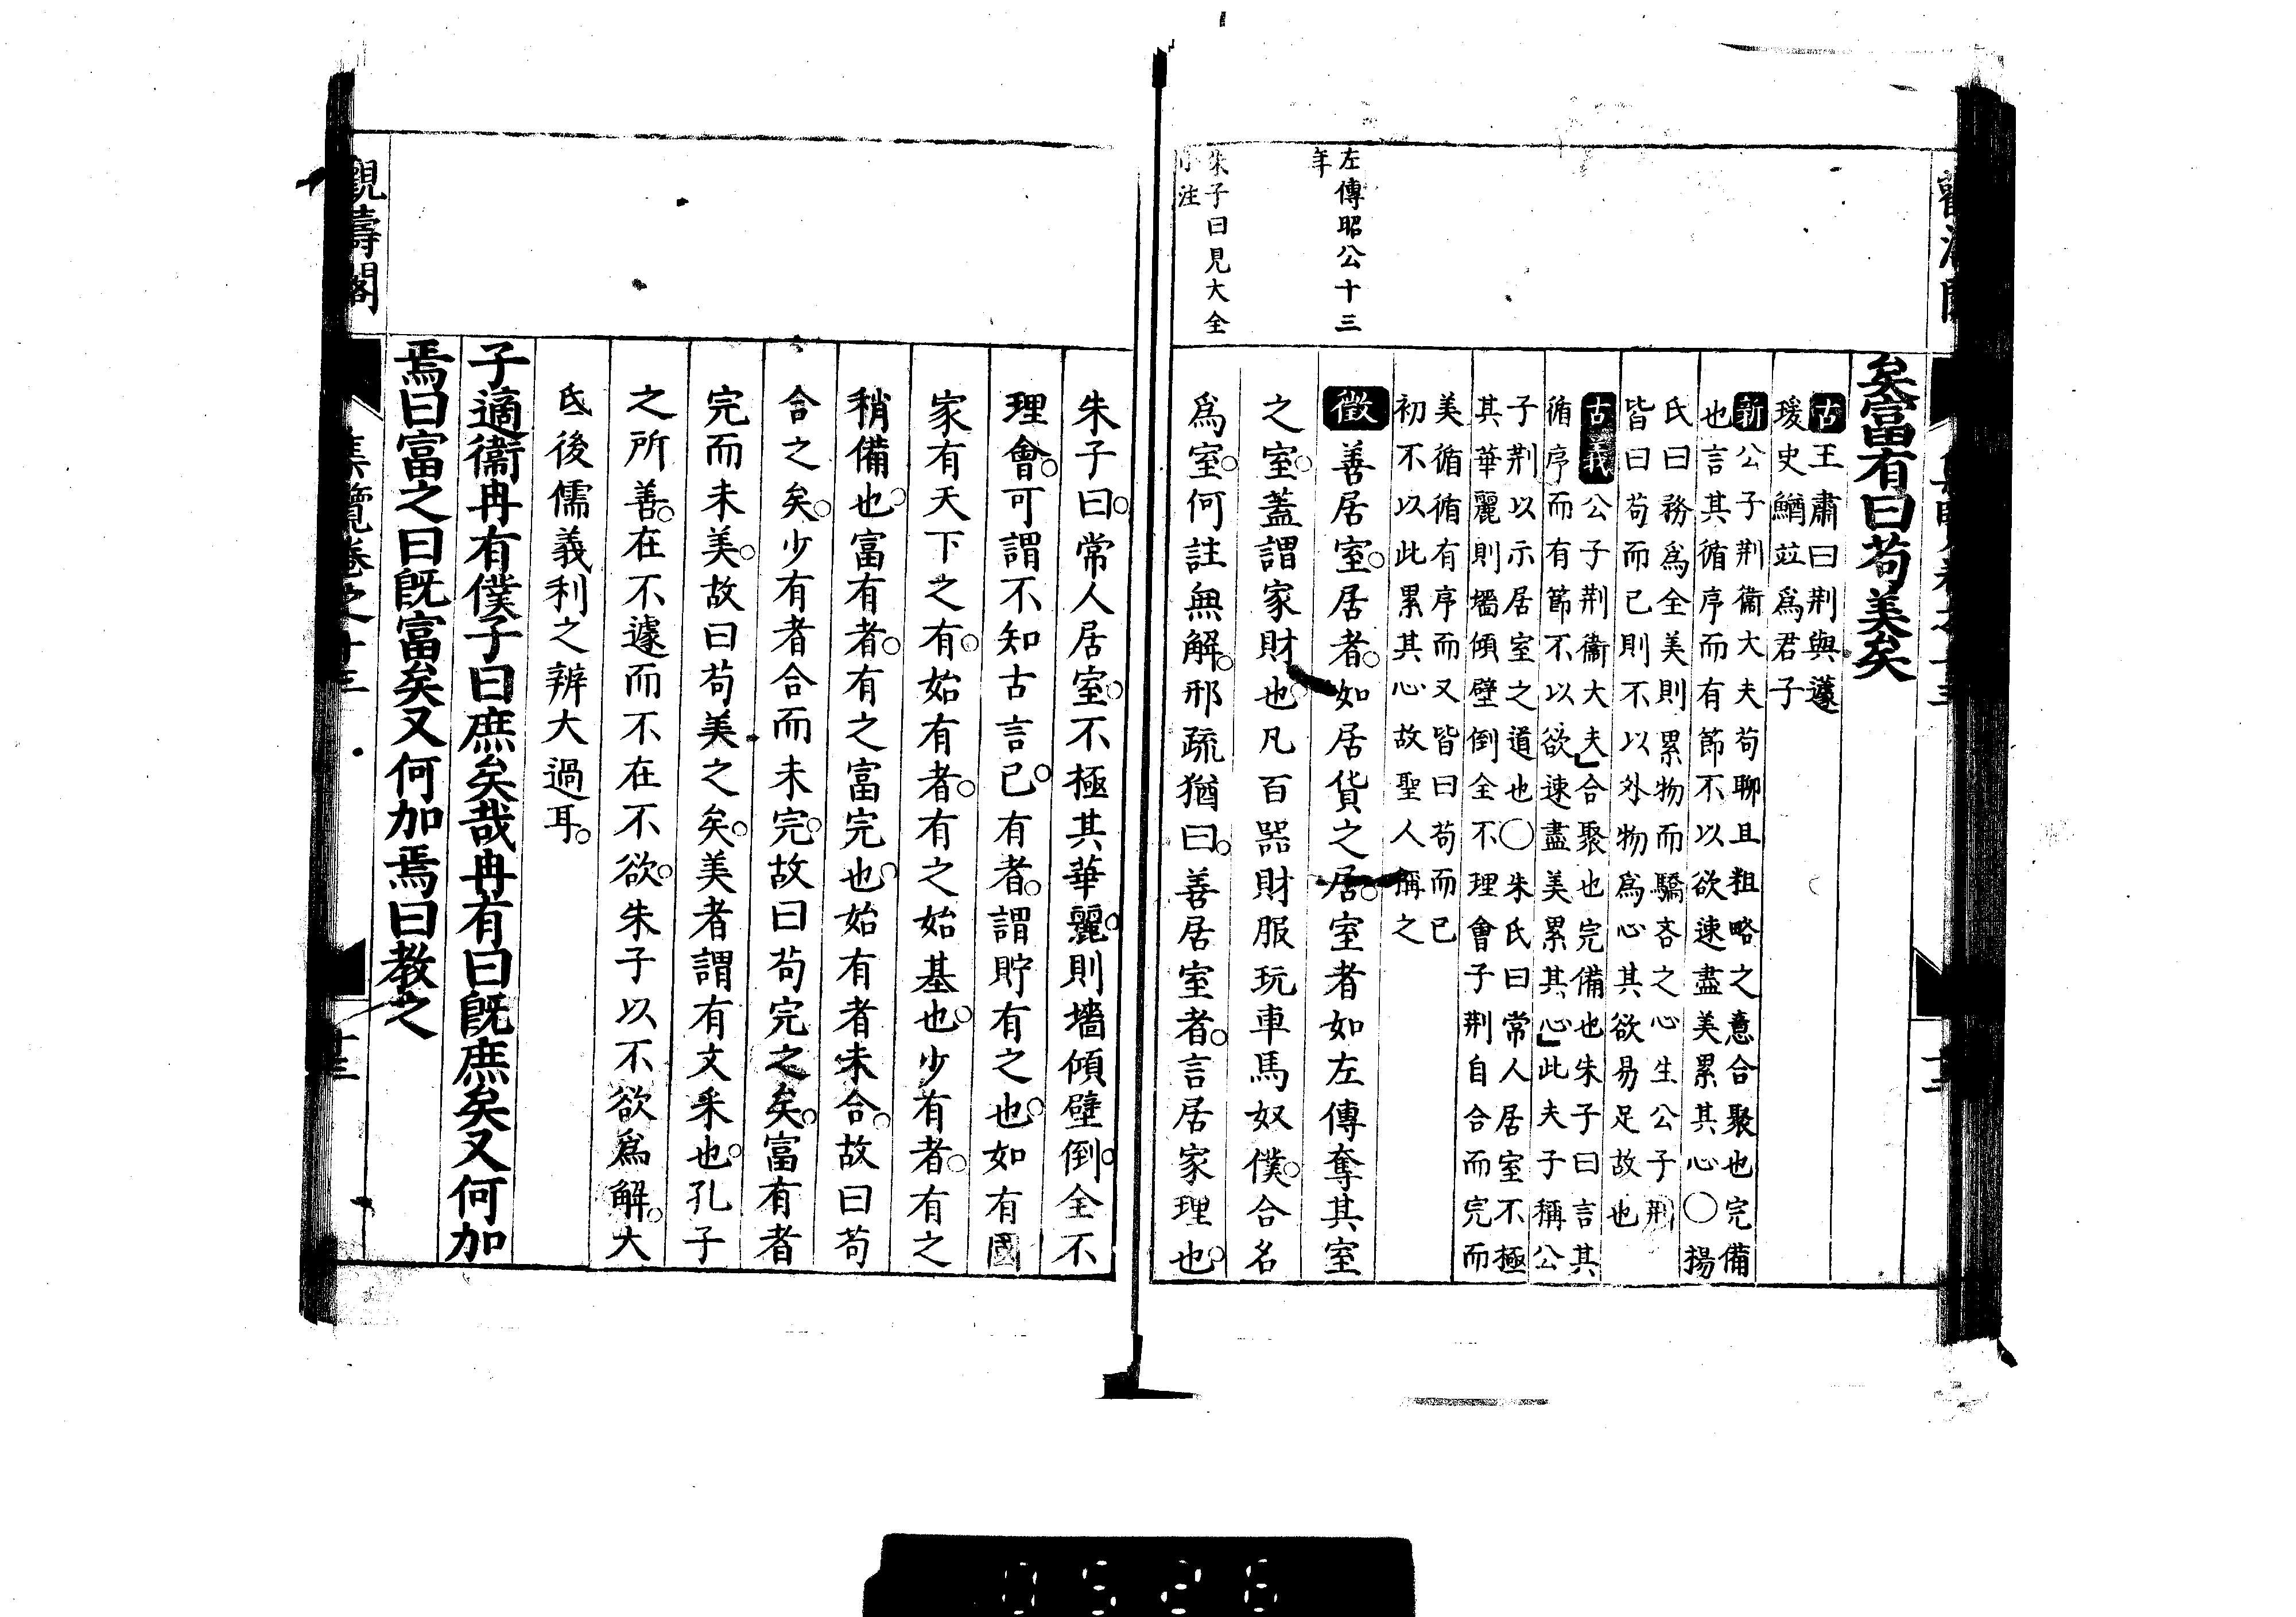 左傳昭公十三
年
朱子曰見大全
小注
矣富有曰苟美矣
古王肅曰荆與蘧
瑗史鰌竝爲君子
新公子荆衞大夫苟聊且粗略之意合聚也完備
也言其循序而有節不以欲速盡美累其心○揚
氏曰務爲全美則累物而驕吝之心生公子荆
皆曰苟而已則不以外物爲心其欲易足故也
古義公子荆衞大夫合聚也完備也朱子曰言其
循序而有節不以欲速盡美累其心此夫子稱公
子荆以示居室之道也○朱氏曰常人居室不極
其華麗則墻傾壁倒全不理會子荆自合而完而
美循循有序而又皆曰苟而已
初不以此累其心故聖人稱之
徵善居室。居者。如居貨之居。室者如左傳奪其室
之室。蓋謂家財也。凡百器財服玩車馬奴僕。合名
爲室。何註無解。邢疏猶曰。善居室者。言居家理也。
朱子曰。常人居室。不極其華麗。則墻傾壁倒。全不
理會。可謂不知古言已。有者。謂貯有之也。如有國
家有天下之有。始有者。有之始基也。少有者。有之
稍備也。富有者。有之富完也。始有者未合。故曰苟
合之矣。少有者合而未完。故曰苟完之矣。富有者
完而未美。故曰苟美之矣。美者謂有文釆也。孔子
之所善。在不遽而不在不欲。朱子以不欲爲解。大
氐後儒義利之辨大過耳。
子適衞冉有僕子曰庶矣哉冉有曰既庶矣又何加
焉曰富之曰既富矣又何加焉曰教之
觀濤閣
集覽卷之十三
十三
0526